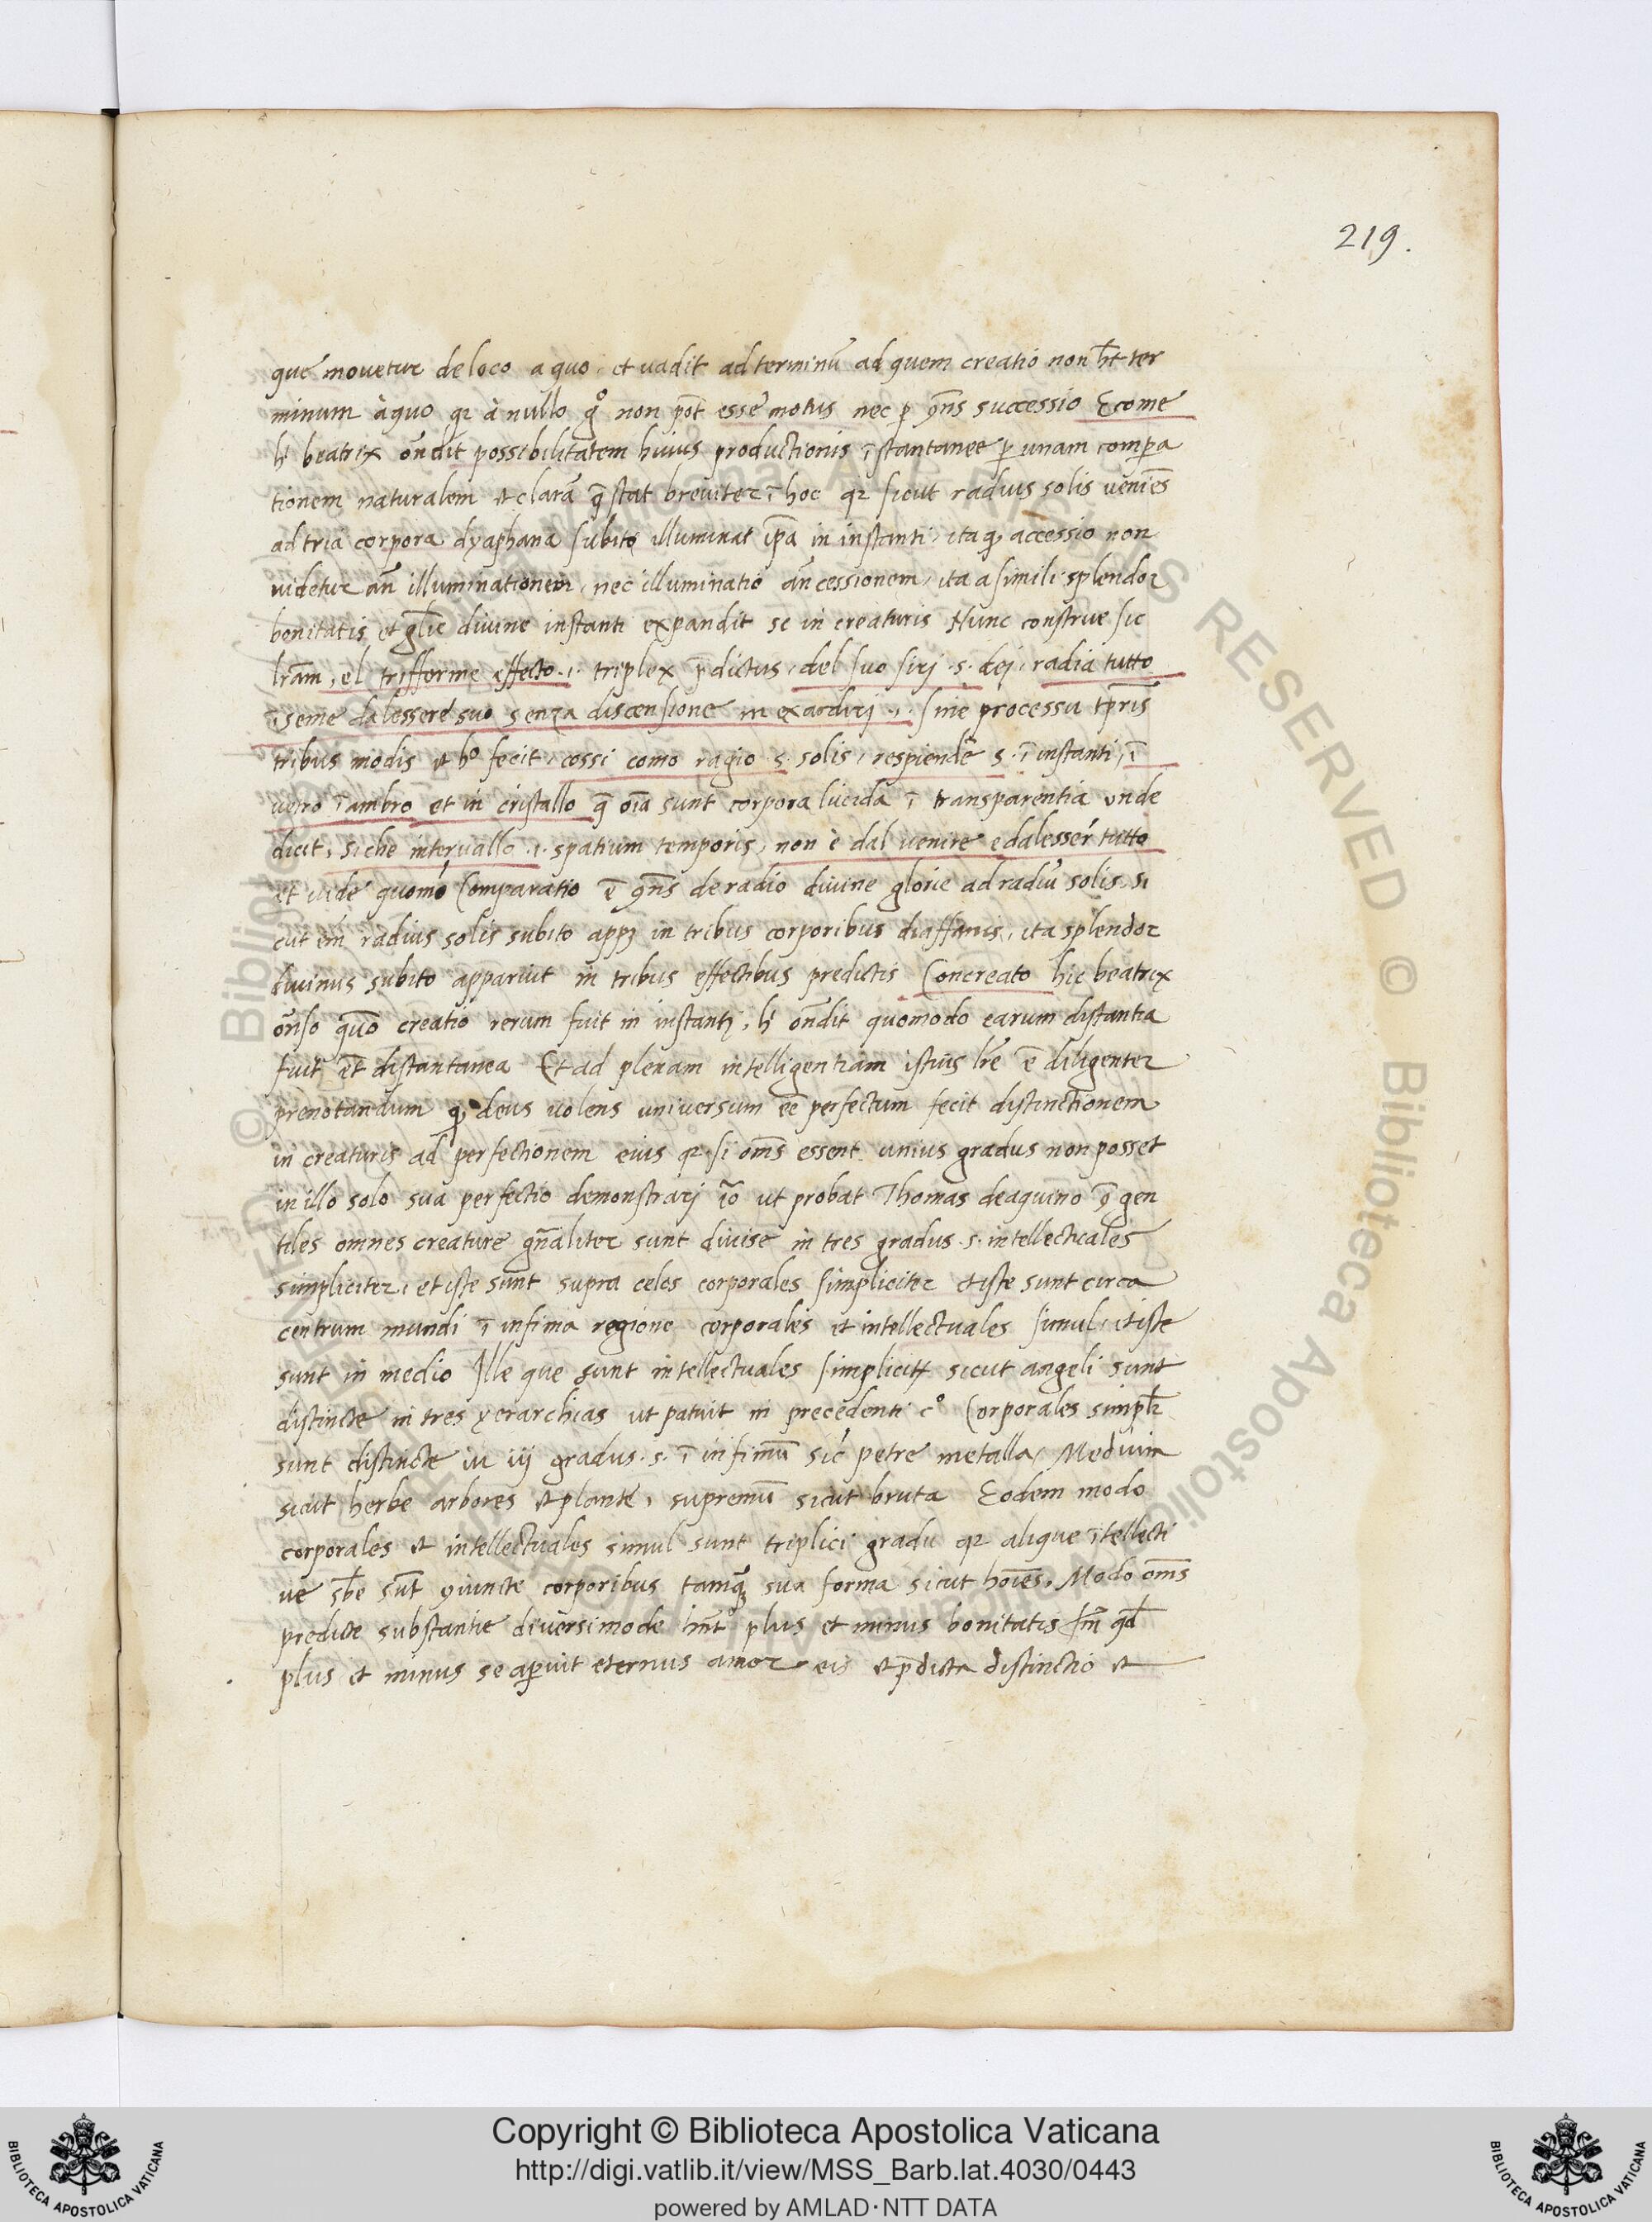 219.
que movetur de loco a quo. et vadit ad terminū ad quem creatio non hт̄ ter
minum à quo qꝛ à nullo gͦ non pōt esse motus nec ꝑ ꝯn̄s successio E come
hͥ beatrix on̄dit possibilitatem huius productionis īstantanee ꝑ unam compa
tionem naturalem et clarā q̄ stat breviter ī hoc qꝛ sicut radius solis veniēs
ad tria corpora dyaphana subito illuminat ip̄a in instanti, ita ꝙ accessio non
videtur an̄ illuminationem, nec illuminatio an̄ cessionem, ita a simili splendor
bonitatis et gl̄ie divine instanti expandit se in creaturis Nunc construe sic
lr̄am, el trifforme effecto .i. triplex p̄dictus, del suo sirj .s. dej, radia tutto
īseme dalessere suo senza discensione in exordirj .i. sine processu tp̄ris
tribus modis et hͦ fecit, cossi como ragio .s. solis, respiende s. ī instanti, ī
vetro ī ambro et in cristallo q̄ oīa sunt corpora lucida ī transparentia unde
dicit, siche intervallo .i. spatium temporis, non è dal venire e dalesser tutto
et vide quomō Comparatio ē ꝯn̄s de radio divine glorie ad radiū solis, si
cut em̄ radius solis subito appꝫ in tribus corporibus diaffanis, ita splendor
divinus subito apparuit in tribus effectibus predictis Concreato hic beatrix
on̄so quō creatio rerum fuit in instantj, hͥ on̄dit quomodo earum distantia
fuit et̄ distantanea Et ad plenam intelligentiam istius lr̄e ē diligenter
prenotandum ꝙ deus volens universum eē perfectum fecit distinctionem
in creaturis ad perfectionem eius qꝛ si om̄s essent unius gradus non posset
in illo solo sua perfectio demonstrarj iō ut probat Thomas de aquino ꝯ̄ gen
tiles omnes creature gn̄aliter sunt divise in tres gradus .s. intellectuales
simpliciter, et iste sunt supra celos corporales simpliciter et iste sunt circa
centrum mundi ī infima regione corporales et intellectuales simul, et iste
sunt in medio Ille que sunt intellectuales simplicitꝭ sicut angeli sunt
distincte in tres yerarchias ut patuit in precedenti cͦ Corporales simpl̄r
sunt distincte in iij gradus .s. ī infimū sic petre metalla, Medium
sicut herbe arbores et plante, supremū sicut bruta Eodem modo
corporales et intellectuales simul sunt triplici gradu qꝛ alique ītellecti
ve sb̄e sūt ꝯiuncte corporibus tamqꝫ sua forma sicut hoīes, Modo om̄s
predicte substantie diversimode hn̄t plus et minus bonitatis sm̄ qd̄
plus et minus se aperuit eternus amor eis et p̄dicta distinctio et
Copyright © Biblioteca Apostolica Vaticana
http://digi.vatlib.it/view/MSS_Barb.lat.4030/0443
powered by AMLAD·NTT DATA
BIBLIOTECA APOSTOLICA VATICANA
BIBLIOTECA APOSTOLICA VATICANA